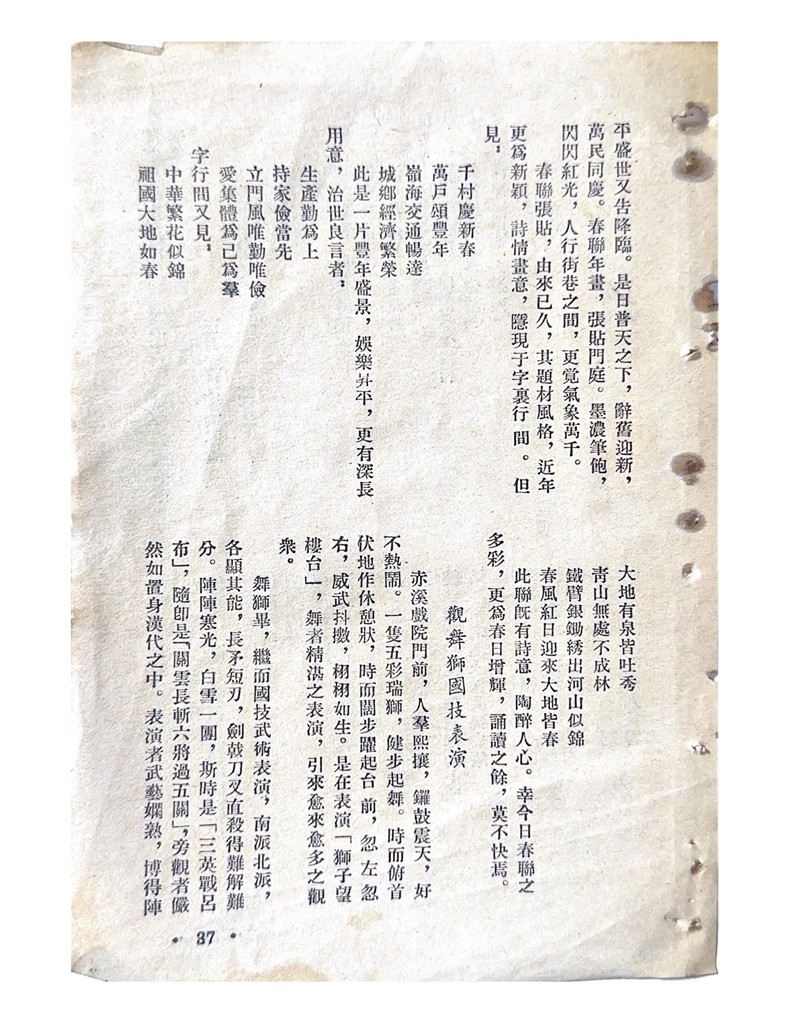 平盛世又告降臨。是日普天之下，辭舊迎新，
萬民同慶。春聯年畫，張貼門庭。墨濃筆飽，
閃閃紅光，人行街巷之間，更覚氣象萬千。
春聯張貼，由來已久，其題材風格，近年
更爲新穎，詩情畫意，隱現于字裏行間。但
見：
千村慶新春
萬戶頌豐年
嶺海交通暢達
城鄉經濟繁榮
此是一片豐年盛景，娛樂昇平，更有深長
用意，治世良言者：
生產勤爲上
持家儉當先
立門風唯勤唯儉
愛集體爲己爲羣
字行間又見：
中華繁花似錦
祖國大地如春
大地有泉皆吐秀
靑山無處不成林
鐵臂銀鋤綉出河山似錦
春風紅日迎來大地皆春
此聯旣有詩意，陶醉人心。幸今日春聯之
多彩，更爲春日增輝，誦讀之餘，莫不快焉。
觀舞獅國技表演
赤溪戲院門前，人羣熙攘，鑼鼓震天，好
不熱鬧。一隻五彩瑞獅，健步起舞。時而俯首
伏地作休憩狀，時而闊步躍起台前，忽左忽
右，威武抖擻，栩栩如生。是在表演「獅子望
樓台」，舞者精湛之表演，引來愈來愈多之觀
衆。
舞獅畢，繼而國技武術表演，南派北派，
各顯其能，長矛短刃，劍戟刀叉直殺得難解難
分。陣陣寒光，白雪一團，斯時是「三英戰呂
布」，隨卽是「關雲長斬六將過五關」，旁觀者儼
然如置身漢代之中。表演者武藝嫻熟，博得陣
• 37 •